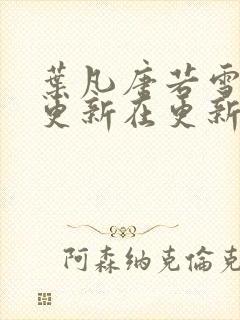 葉凡唐若雪
更新在更新
阿森纳克倫克